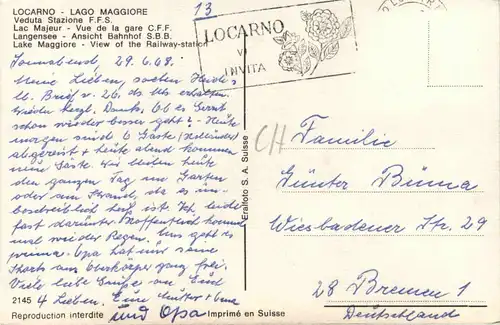 LOCARNO - LAGO MAGGIORE
Veduta Stazione F.F.S.
Lac Majeur - Vue de la gare C.F.F.
Langensee - Ansicht Bahnhof S.B.B.
Lake Maggiore - View of the Railway-station
13
LOCARNO
VI
INVITA
Sonnabend, 29.6.68.
Meine Lieben, soeben Heides
lb. Brief v. 26. ds Mts erhalten
wieder herzl. Dank. Ob es Gerrit
schon wieder besser geht? - Heute
morgen sind 6 Gäste (Holländer)
abgereist + heute abend kommen
neue Gäste. Wir bleiben heute
den ganzen Tag im Garten
oder am Strand, da es un-
beschreiblich heiß ist. Ich leide
fast darunter. Hoffentlich kommt
mal wieder Regen. Uns geht es
prima. Opa hat nur seine
Shorts an Oberkörper ganz frei.
Viele liebe Grüße an Euch
4 Lieben. Eure Mutter + Oma
und Opa
2145
Reproduction interdite
Imprimé en Suisse
Eralfoto S. A. Suisse
CH
Familie
Günter Büma
Wiesbadener Str. 29
28 Bremen 1
Deutschland